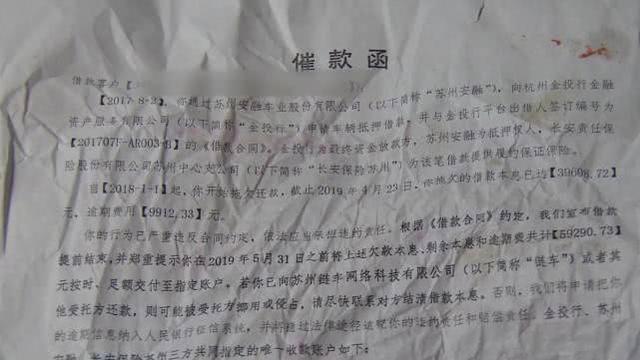 催款函
借款客户【
【2017-8-2】，你通过苏州安融车业股份有限公司（以下简称“苏州安融”），向杭州金投行金融
资产服务有限公司（以下简称“金投行”）申请车辆抵押借款，并与金投行平台出借人签订编号为
【201707F-AR003-B】的《借款合同》。金投行为最终资金放款方，苏州安融为抵押权人，长安责任保
险股份有限公司苏州中心支公司（以下简称“长安保险苏州”）为该笔借款提供履约保证保险。
自【2018-1-1】起，你开始拖欠还款，截止2019年4月23日，你拖欠的借款本息已达【39608.72】
元，逾期费用【9912.33】元。
你的行为已严重违反合同约定，依法应当承担违约责任。根据《借款合同》约定，我们宣布借款
提前结束，并郑重提示你在2019年5月31日之前将上述欠款本息、剩余本息和逾期费共计【59290.73】
元按时、足额交付至指定账户。若你已向苏州链车网络科技有限公司（以下简称“链车”）或者其
他受托方还款，则可能被受托方挪用或侵占，请尽快联系对方结清借款本息。否则，我们将申请把你
的逾期信息纳入人民银行征信系统，并将通过法律途径追究你的违约责任和赔偿责任。金投行、苏州
安融、长安保险苏州三方共同指定的唯一收款账户如下：